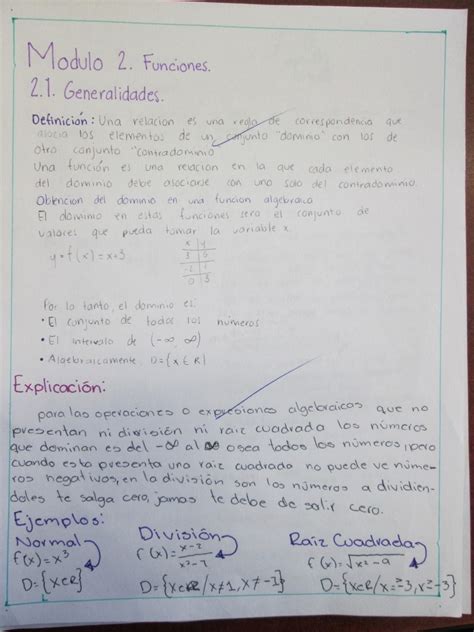 Modulo 2. Funciones.
2.1. Generalidades.
Definición: Una relacion es una regla de correspondencia que
asocia los elementos de un conjunto "dominio" con los de
otro conjunto "contradominio
Una función es una relacion en la que cada elemento
del dominio debe asociarse con uno solo del contradominio.
Obtencion del dominio en una funcion algebraica
El dominio en estas funciones sera el conjunto de
valores que pueda tomar la variable x.
x y
y=f(x)=x+3 3 6
0 3
Por lo tanto, el dominio es:
• El conjunto de todos los números
• El intervalo de (-∞, ∞)
• Algebraicamente, D={x ∈ R}
Explicación:
para las operaciones o expresiones algebraicas que no
presentan ni división ni raiz cuadrada los números
que dominan es del -∞ al ∞ osea todos los números, pero
cuando esta presenta una raiz cuadrada no puede ve núme-
ros negativos, en la división son los números a dividien-
doles te salga cero, jamas te debe de salir cero.
Ejemplos:
Normal División Raiz Cuadrada
f(x)=x³ f(x)= f(x)=√x²-9
D={x∈R} D={x∈R/x≠1, x≠-3} D={x∈R/x=-3, x=-3}